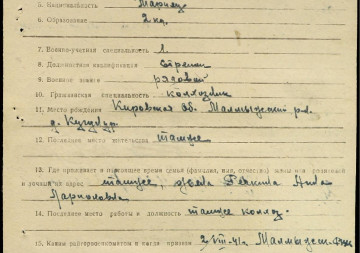 5. Национальность Мариец
6. Образование 2 кл.
7. Военно-учетная специальность 1.
8. Должностная квалификация стрелок
9. Военное звание рядовой
10. Гражданская специальность колхозник
11. Место рождения Кировская об. Малмыжский р-н.
д.
12. Последнее место жительства тамже
13. Где проживает в настоящее время семья (фамилия, имя, отчество) жены или родителей
и точный их адрес тамже, жена Анна
Ларионовна
14. Последнее место работы и должность тамже колхоз.
15. Каким райвоенкоматом и когда призван 2/VIII-41г. Малмыжск.